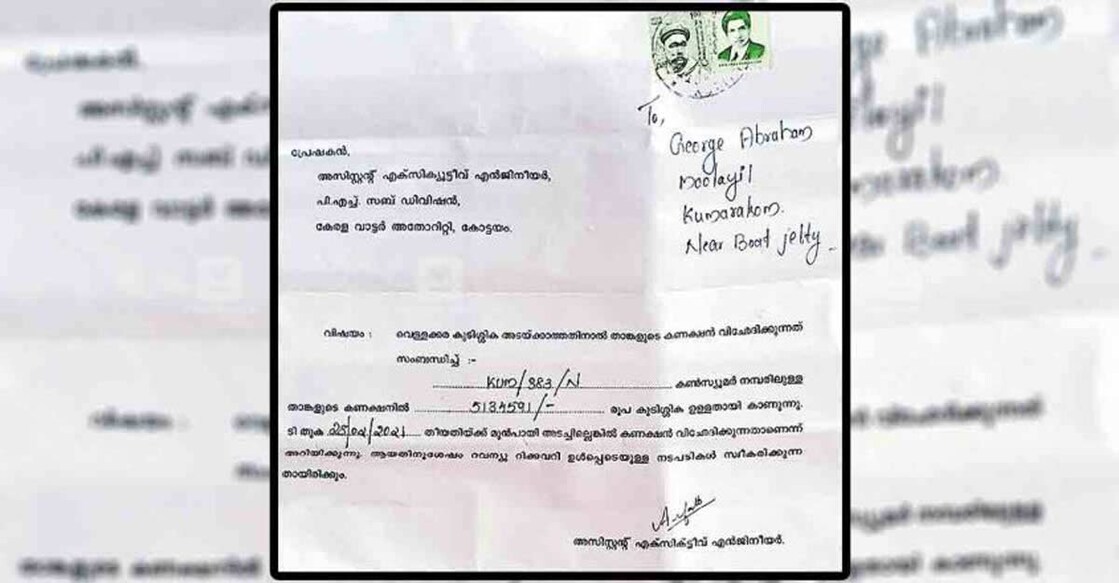 To,
George Abraham
Moolayil
Kumarakom.
Near Boat jelty
പ്രേഷകൻ,
അസിസ്റ്റന്റ് എക്സിക്യൂട്ടീവ് എൻജിനീയർ,
പി.എച്ച്. സബ് ഡിവിഷൻ,
കേരള വാട്ടർ അതോറിറ്റി, കോട്ടയം.
വിഷയം : വെള്ളക്കര കുടിശ്ശിക അടയ്ക്കാത്തതിനാൽ താങ്കളുടെ കണക്ഷൻ വിഛേദിക്കുന്നത്
സംബന്ധിച്ച് :-
KUM/383/N കൺസ്യൂമർ നമ്പരിലുള്ള
താങ്കളുടെ കണക്ഷനിൽ 5134591/- രൂപ കുടിശ്ശിക ഉള്ളതായി കാണുന്നു.
ടി തുക 25/02/2021 തീയതിയ്ക്ക് മുൻപായി അടച്ചില്ലെങ്കിൽ കണക്ഷൻ വിഛേദിക്കുന്നതാണെന്ന്
അറിയിക്കുന്നു. ആയതിനുശേഷം റവന്യൂ റിക്കവറി ഉൾപ്പെടെയുള്ള നടപടികൾ സ്വീകരിക്കുന്ന
തായിരിക്കും.
അസിസ്റ്റന്റ് എക്സിക്ടീവ് എൻജിനീയർ.